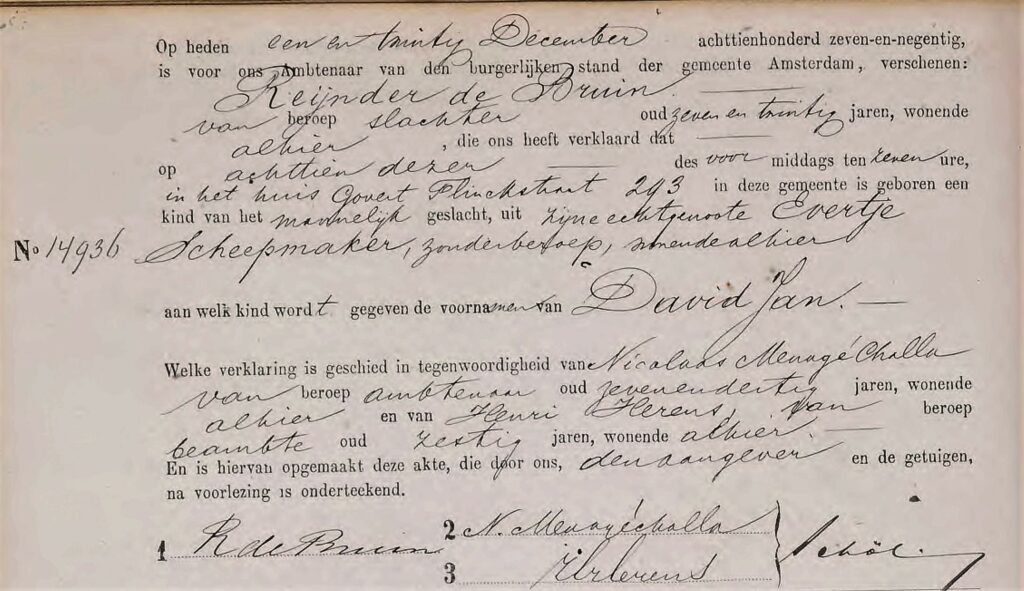 Op heden een en twintig December achttienhonderd zeven-en-negentig,
is voor ons Ambtenaar van den burgerlijken stand der gemeente Amsterdam, verschenen:
Reijnder de Bruin
van beroep slachter oud zeven en twintig jaren, wonende
alhier, die ons heeft verklaard dat
op achttien dezer des voor middags ten zeven ure,
in het huis Govert Flinckstraat 293 in deze gemeente is geboren een
kind van het mannelijk geslacht, uit zijne echtgenoote Evertje
No 14936 Scheepmaker, zonder beroep, wonende alhier
aan welk kind wordt gegeven de voornamen van David Jan.
Welke verklaring is geschied in tegenwoordigheid van Nicolaas Menagé Challa
van beroep ambtenaar oud zevenendertig jaren, wonende
alhier en van Henri Herens, van beroep
beambte oud zestig jaren, wonende alhier.
En is hiervan opgemaakt deze akte, die door ons, den aangever en de getuigen,
na voorlezing is onderteekend.
1 R de Bruin 2 N. Menagé Challa
3 Herens